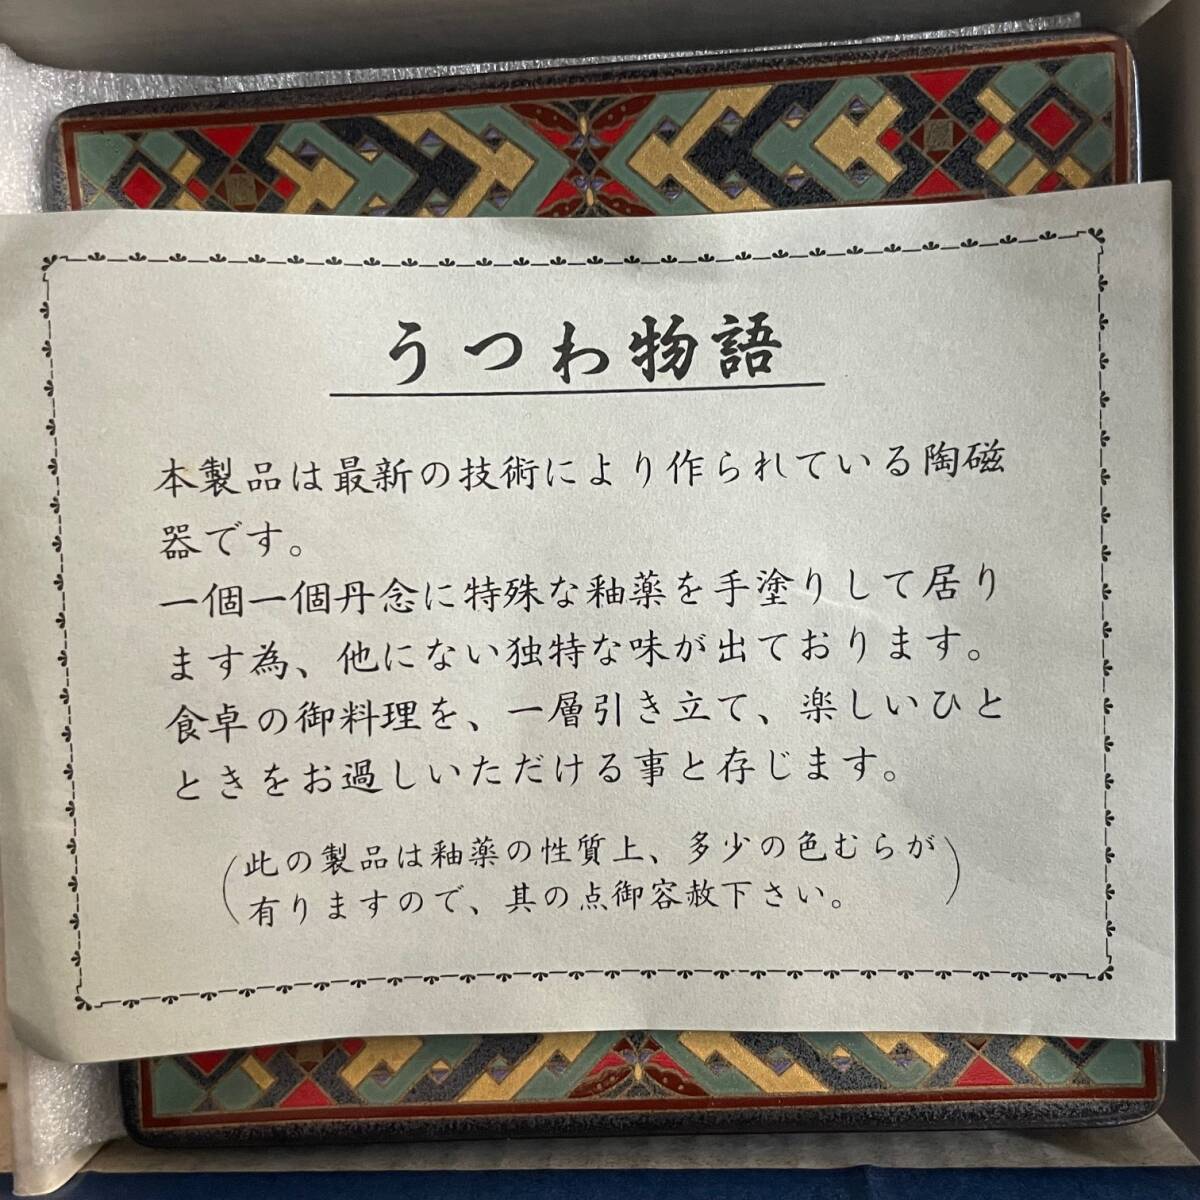 うつわ物語
本製品は最新の技術により作られている陶磁
器です。
一個一個丹念に特殊な釉薬を手塗りして居り
ます為、他にない独特な味が出ております。
食卓の御料理を、一層引き立て、楽しいひと
ときをお過しいただける事と存じます。
(此の製品は釉薬の性質上、多少の色むらが
有りますので、其の点御容赦下さい。)